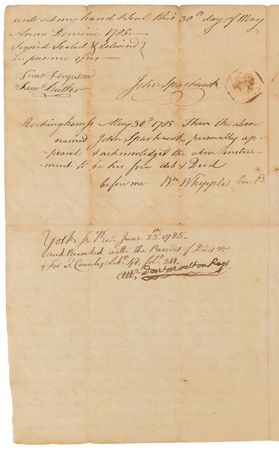 unto set my hand & Seal this 30th day of May
Anno Domini 1785.
Signed Sealed & Delivered
in presence of us
Ferguson
Saml Cutler
John Sparhawk
Rockingham ss May 30th 1785 Then the above
named John Sparhawk personally ap-
peared & acknowledged the above Instru-
ment to be his free Act & Deed
before me Wm Whipple
York ss Recd June 25th 1785.
and Recorded with the Records of Deeds
for sd County Lib. 48. fol. 244.
Attr Danl Moulton Regr